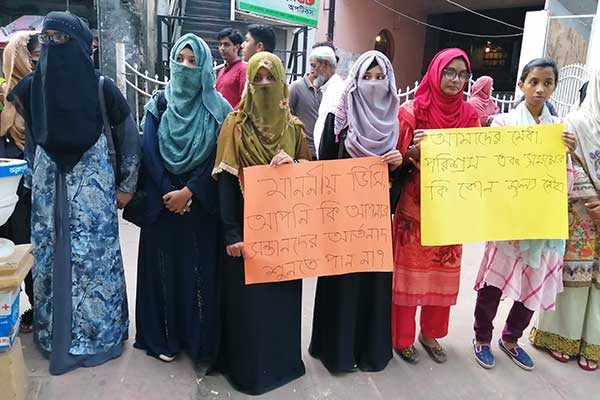 অপটিকস
মাননীয় ডিসি,
আপনি কি আপনার
সন্তানদের আর্তনাদ
শুনতে পান না?
আমাদের মেধা,
পরিশ্রম এবং সময়ের
কি কোন মূল্য নেই?